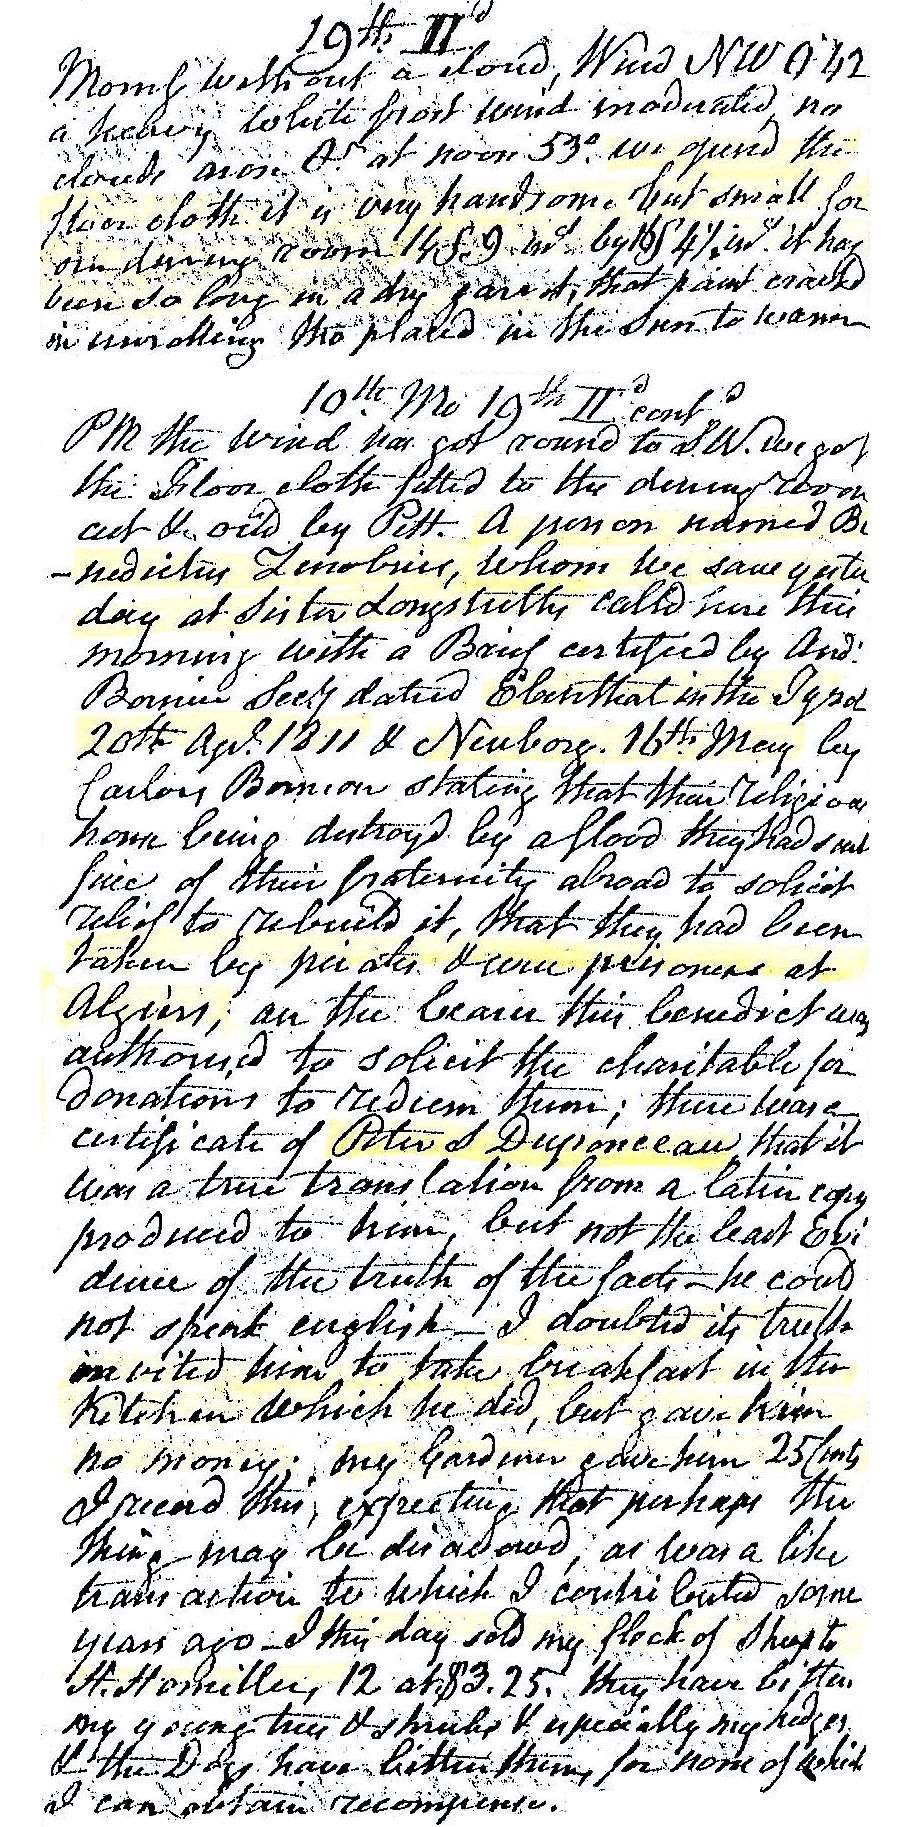 19th II^d
Morng without a cloud, Wind NW 42
a heavy white frost wind moderated, no
clouds arose at noon 53° we opend the
floor cloth it is very handsome but small for
our dining room 14 f. 9 in^s by 4½ in^s it has
been so long in a dry garret, that paint crackd
in unrolling tho placed in the Sun to warm
10th Mo 19th II^d cont^d
PM the Wind has got round to S.W. we got
the Floor cloth fitted to the dining room
cut & oild by Pitt. A person named Be
-nedictus Zenobius, whom we saw yester
day at Sister Longstreths calld here this
morning with a Brief certified by And^r
Bomin Secy dated Ebenthal in the Tyrol
20th Apl. 1811 & Neuborg. 16th May by
Carlos Bomion stating that their religious
house being destroyd by a flood they had sent
five of their fraternity abroad to solicit
relief to rebuild it, that they had been
taken by pirates & were prisoners at
Algiers; an the bearer this benedict was
authorised to solicit the charitable for
donations to redeem them; there was a
certificate of Peter S Duponceau that it
was a true translation from a latin copy
produced to him, but not the least Evi
dence of the truth of the facts – he could
not speak english – I doubted its truth
invited him to take breakfast in the
Kitchen which he did, but gave him
no money; my Gardener gave him 25 Cents
I record this, expecting that perhaps the
thing may be disavowd, as was a like
transaction to which I contributed some
years ago – I this day sold my flock of Sheep to
H. Homiller, 12 at $3.25. they have bitten
my young trees & shrubs & especially my hedges
& the Dogs have bitten them, for none of which
I can obtain recompense.